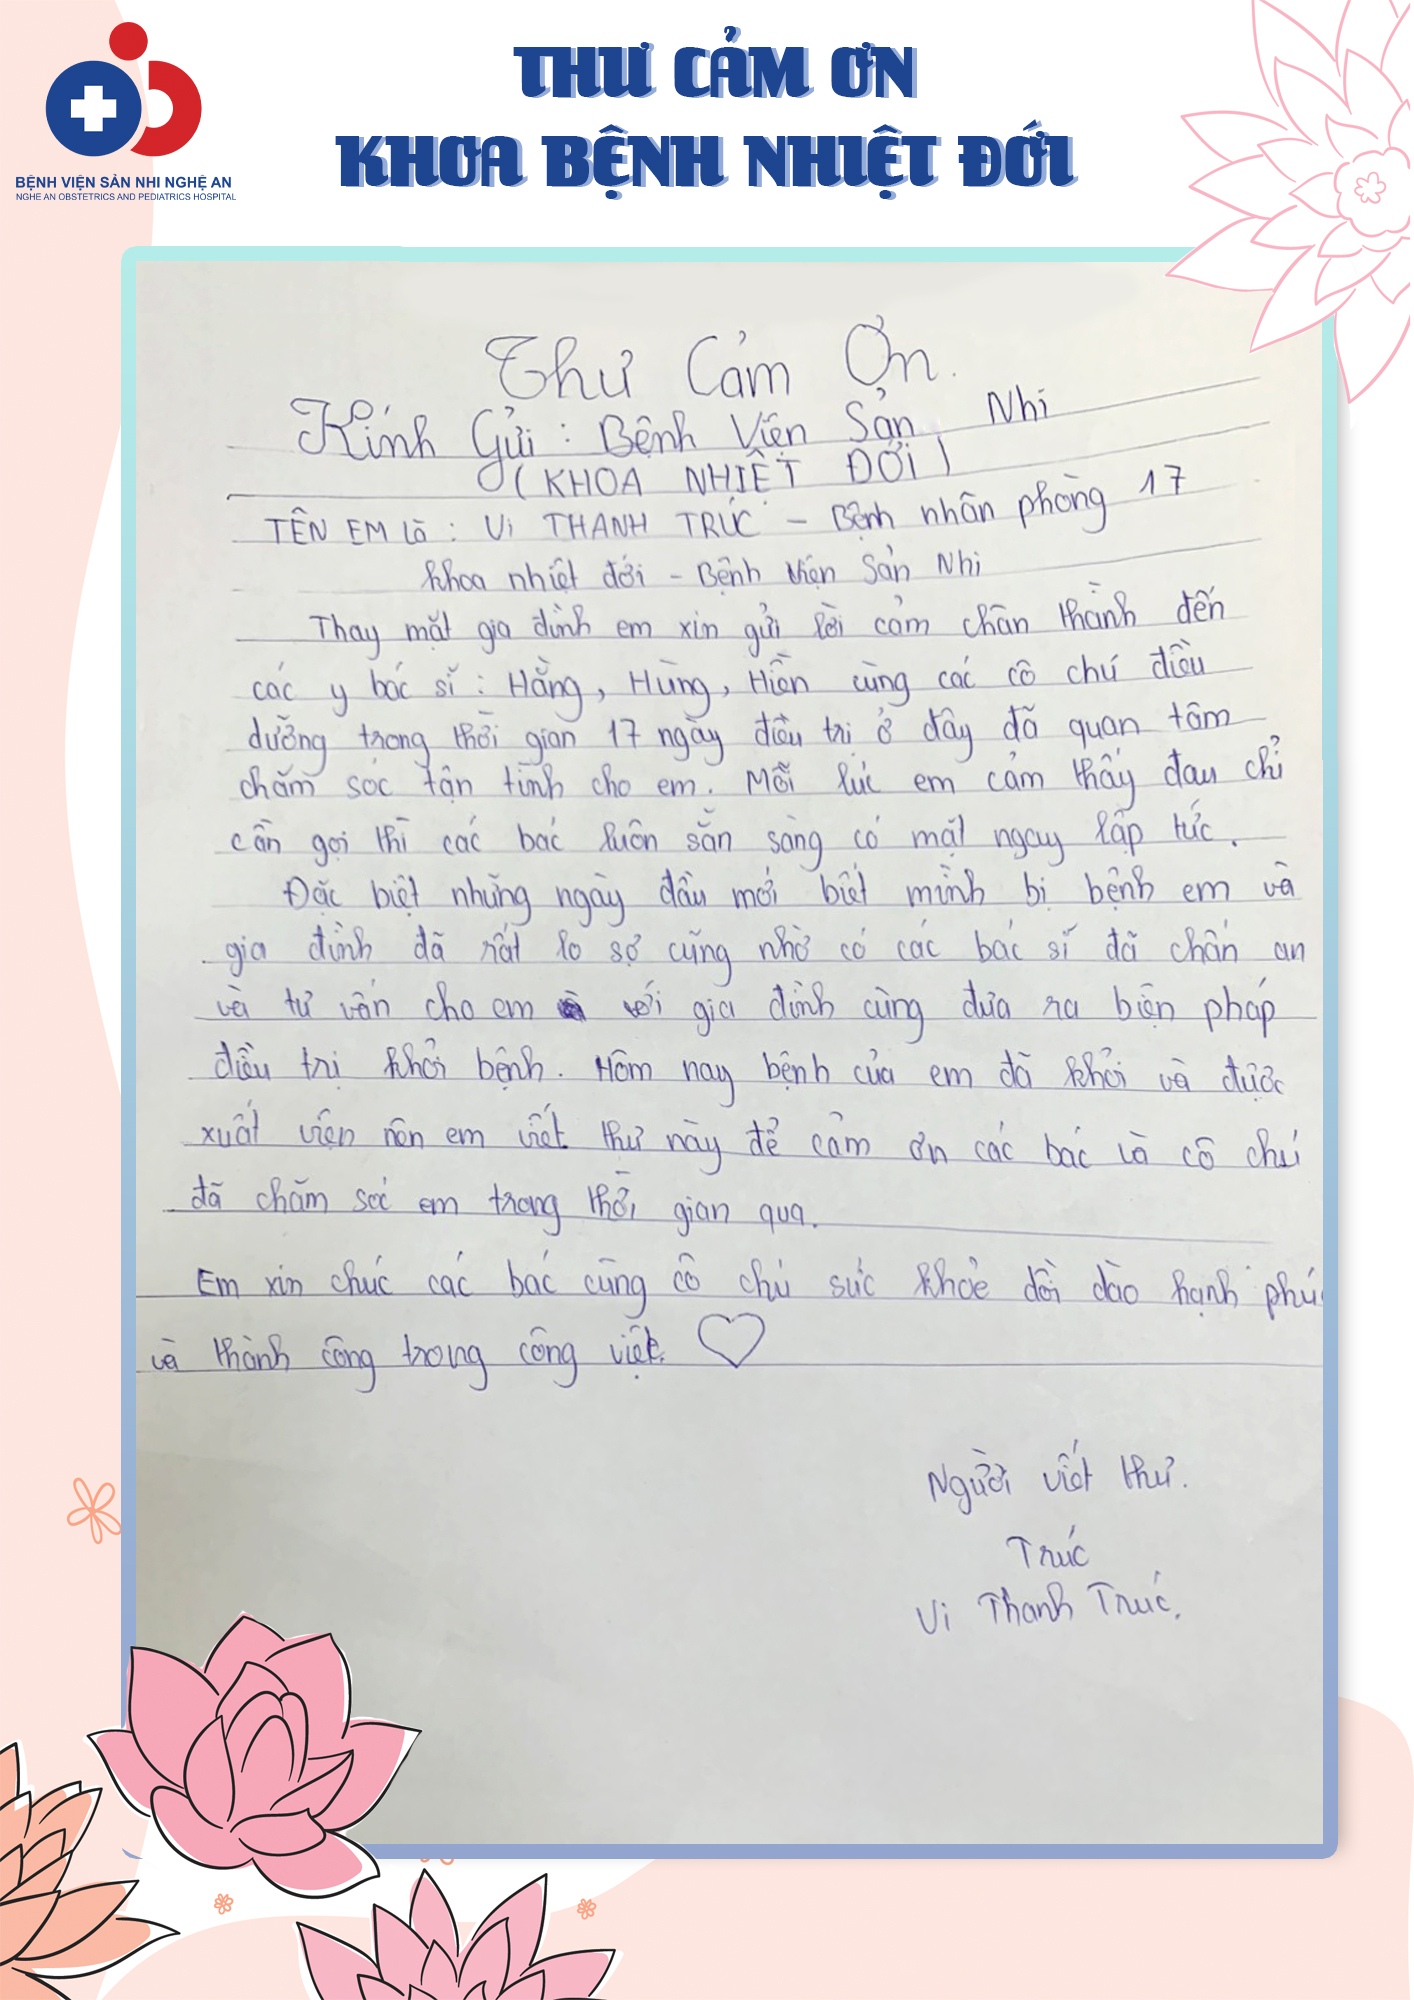 THƯ CẢM ƠN
KHOA BỆNH NHIỆT ĐỚI
BỆNH VIỆN SẢN NHI NGHỆ AN
NGHE AN OBSTETRICS AND PEDIATRICS HOSPITAL
Thư Cảm Ơn.
Kính Gửi : Bệnh Viện Sản Nhi
(KHOA NHIỆT ĐỚI)
TÊN EM là : Vi THANH TRÚC - Bệnh nhân phòng 17
khoa nhiệt đới - Bệnh Viện Sản Nhi
Thay mặt gia đình em xin gửi lời cảm chân thành đến
các y bác sĩ : Hằng, Hùng, Hiền cùng các cô chú điều
dưỡng trong thời gian 17 ngày điều trị ở đây đã quan tâm
chăm sóc tận tình cho em. Mỗi lúc em cảm thấy đau chỉ
cần gọi thì các bác luôn sẵn sàng có mặt ngay lập tức.
Đặc biệt những ngày đầu mới biết mình bị bệnh em và
gia đình đã rất lo sợ cũng nhờ có các bác sĩ đã chấn an
và tư vấn cho em với gia đình cùng đưa ra biện pháp
điều trị khỏi bệnh. Hôm nay bệnh của em đã khỏi và được
xuất viện nên em viết thư này để cảm ơn các bác và cô chú
đã chăm sóc em trong thời gian qua.
Em xin chúc các bác cùng cô chú sức khỏe dồi dào hạnh phúc
và thành công trong công việc.
Người viết thư.
Trúc
Vi Thanh Trúc.